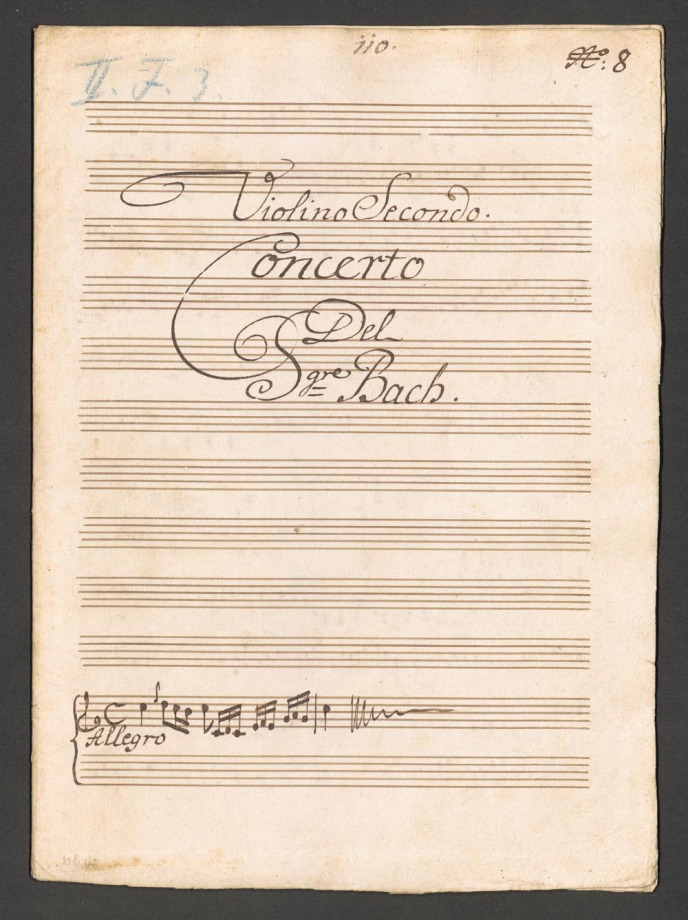 110.
No: 8
II. F. 3.
Violino Secondo.
Concerto
Del
Sgre Bach.
Allegro